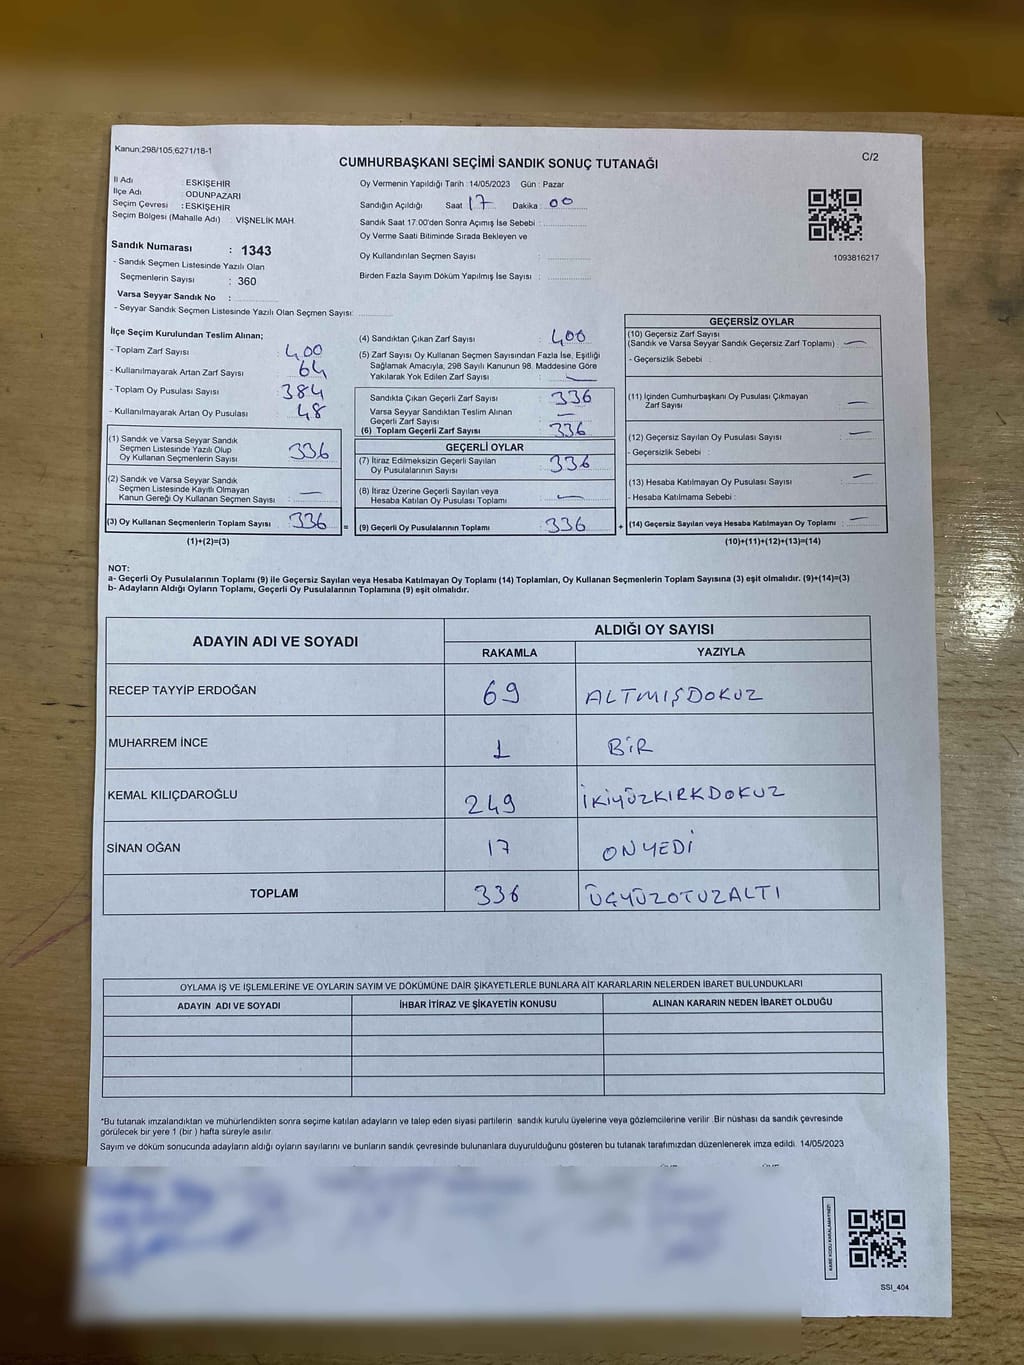 Kanun:298/105,6271/18-1
C/2
CUMHURBAŞKANI SEÇİMİ SANDIK SONUÇ TUTANAĞI
İl Adı : ESKİŞEHİR
İlçe Adı : ODUNPAZARI
Seçim Çevresi : ESKİŞEHİR
Seçim Bölgesi (Mahalle Adı) : VİŞNELİK MAH.
Sandık Numarası : 1343
- Sandık Seçmen Listesinde Yazılı Olan
Seçmenlerin Sayısı : 360
Varsa Seyyar Sandık No :
- Seyyar Sandık Seçmen Listesinde Yazılı Olan Seçmen Sayısı:
Oy Vermenin Yapıldığı Tarih : 14/05/2023 Gün : Pazar
Sandığın Açıldığı Saat 17 Dakika : 00
Sandık Saat 17:00'den Sonra Açımış İse Sebebi :
Oy Verme Saati Bitiminde Sırada Bekleyen ve
Oy Kullandırılan Seçmen Sayısı :
Birden Fazla Sayım Döküm Yapılmış İse Sayısı :
1093816217
İlçe Seçim Kurulundan Teslim Alınan;
- Toplam Zarf Sayısı : 400
- Kullanılmayarak Artan Zarf Sayısı : 64
- Toplam Oy Pusulası Sayısı : 384
- Kullanılmayarak Artan Oy Pusulası : 48
(1) Sandık ve Varsa Seyyar Sandık
Seçmen Listesinde Yazılı Olup
Oy Kullanan Seçmenlerin Sayısı : 336
(2) Sandık ve Varsa Seyyar Sandık
Seçmen Listesinde Kayıtlı Olmayan
Kanun Gereği Oy Kullanan Seçmen Sayısı : —
(3) Oy Kullanan Seçmenlerin Toplam Sayısı : 336
(1)+(2)=(3)
=
(4) Sandıktan Çıkan Zarf Sayısı : 400
(5) Zarf Sayısı Oy Kullanan Seçmen Sayısından Fazla İse, Eşitliği
Sağlamak Amacıyla, 298 Sayılı Kanunun 98. Maddesine Göre
Yakılarak Yok Edilen Zarf Sayısı : —
Sandıkta Çıkan Geçerli Zarf Sayısı : 336
Varsa Seyyar Sandıktan Teslim Alınan
Geçerli Zarf Sayısı : —
(6) Toplam Geçerli Zarf Sayısı : 336
GEÇERLİ OYLAR
(7) İtiraz Edilmeksizin Geçerli Sayılan
Oy Pusulalarının Sayısı : 336
(8) İtiraz Üzerine Geçerli Sayılan veya
Hesaba Katılan Oy Pusulası Toplamı : —
(9) Geçerli Oy Pusulalarının Toplamı : 336
+
GEÇERSİZ OYLAR
(10) Geçersiz Zarf Sayısı
(Sandık ve Varsa Seyyar Sandık Geçersiz Zarf Toplamı) : —
- Geçersizlik Sebebi :
(11) İçinden Cumhurbaşkanı Oy Pusulası Çıkmayan
Zarf Sayısı : —
(12) Geçersiz Sayılan Oy Pusulası Sayısı : —
- Geçersizlik Sebebi :
(13) Hesaba Katılmayan Oy Pusulası Sayısı : —
- Hesaba Katılmama Sebebi :
(14) Geçersiz Sayılan veya Hesaba Katılmayan Oy Toplamı : —
(10)+(11)+(12)+(13)=(14)
NOT:
a- Geçerli Oy Pusulalarının Toplamı (9) ile Geçersiz Sayılan veya Hesaba Katılmayan Oy Toplamı (14) Toplamları, Oy Kullanan Seçmenlerin Toplam Sayısına (3) eşit olmalıdır. (9)+(14)=(3)
b- Adayların Aldığı Oyların Toplamı, Geçerli Oy Pusulalarının Toplamına (9) eşit olmalıdır.
ADAYIN ADI VE SOYADI
ALDIĞI OY SAYISI
RAKAMLA YAZIYLA
RECEP TAYYİP ERDOĞAN 69 ALTMIŞDOKUZ
MUHARREM İNCE 1 BİR
KEMAL KILIÇDAROĞLU 249 İKİYÜZKIRKDOKUZ
SİNAN OĞAN 17 ONYEDİ
TOPLAM 336 ÜÇYÜZOTUZALTI
OYLAMA İŞ VE İŞLEMLERİNE VE OYLARIN SAYIM VE DÖKÜMÜNE DAİR ŞİKAYETLERLE BUNLARA AİT KARARLARIN NELERDEN İBARET BULUNDUKLARI
ADAYIN ADI VE SOYADI İHBAR İTİRAZ VE ŞİKAYETİN KONUSU ALINAN KARARIN NEDEN İBARET OLDUĞU
*Bu tutanak imzalandıktan ve mühürlendikten sonra seçime katılan adayların ve talep eden siyasi partilerin sandık kurulu üyelerine veya gözlemcilerine verilir. Bir nüshası da sandık çevresinde
görülecek bir yere 1 (bir ) hafta süreyle asılır.
Sayım ve döküm sonucunda adayların aldığı oyların sayılarını ve bunların sandık çevresinde bulunanlara duyurulduğunu gösteren bu tutanak tarafımızdan düzenlenerek imza edildi. 14/05/2023
KARE KODU KARALAMAYINIZ!
SSI_404